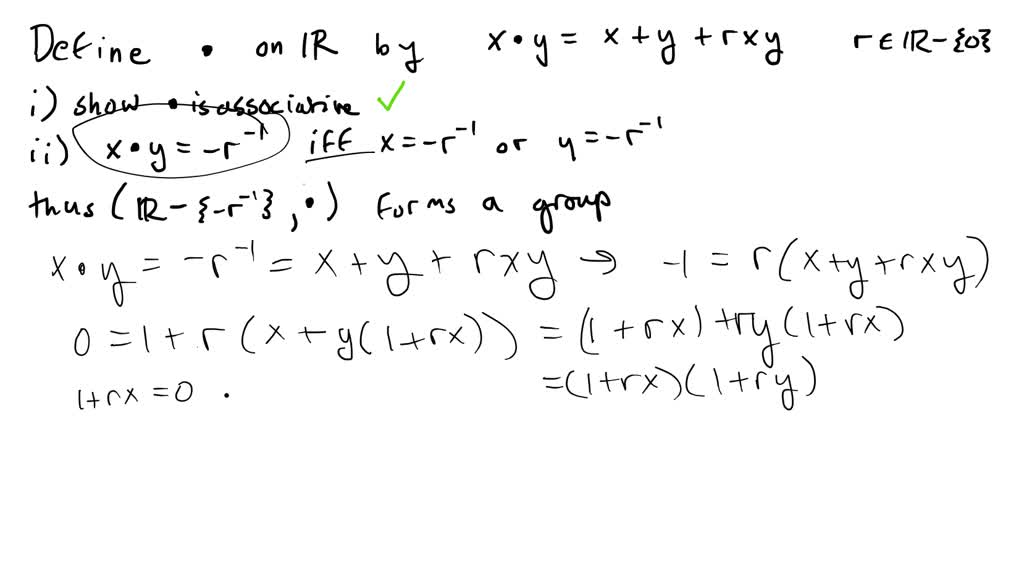 Define • on ℝ by x • y = x + y + rxy r ∈ ℝ - {0}
i) show • is associative ✓
ii) x • y = -r⁻¹ iff x = -r⁻¹ or y = -r⁻¹
thus (ℝ - {-r⁻¹}, •) forms a group
x • y = -r⁻¹ = x + y + rxy → -1 = r(x+y+rxy)
0 = 1 + r(x + y(1+rx)) = (1+rx) + ry(1+rx)
1+rx = 0 . = (1+rx)(1+ry)